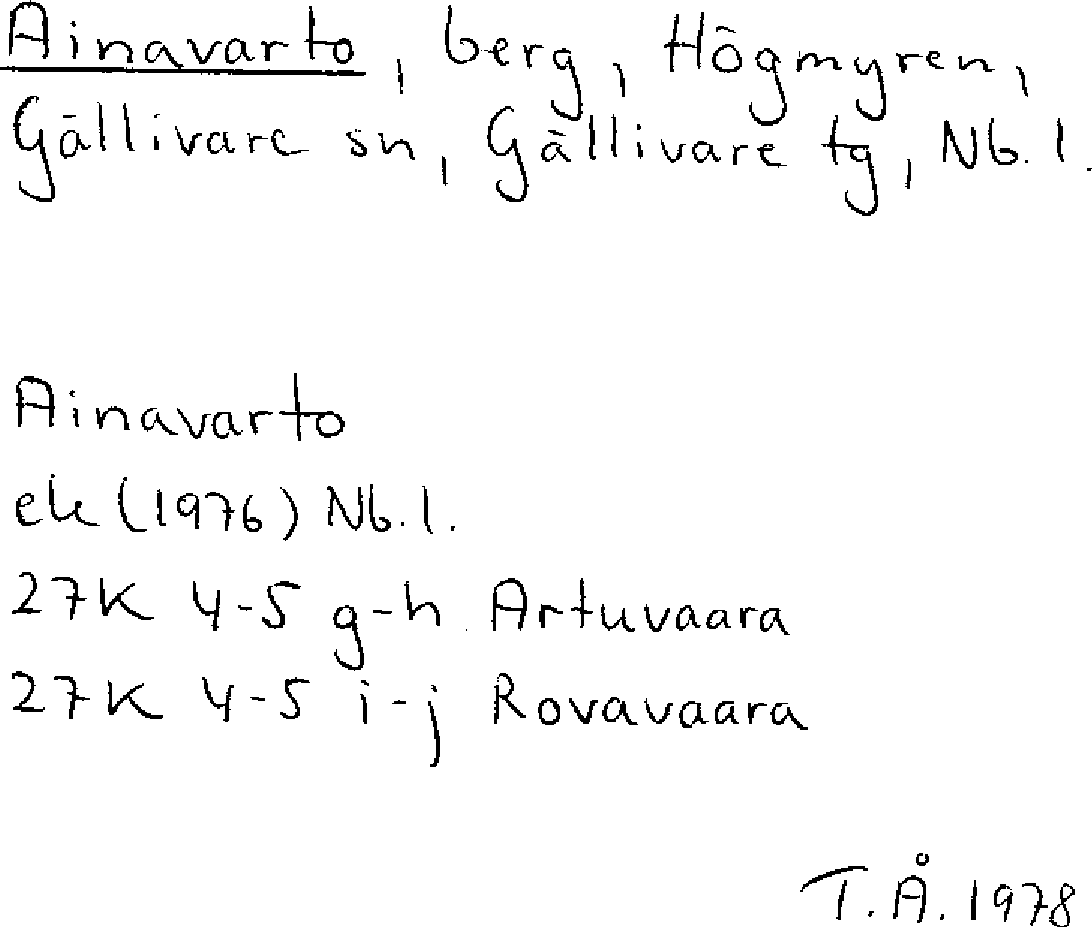 Ainavarto, berg, Högmyren,
Gällivare sn, Gällivare tg, Nb. l.
Ainavarto
ek (1976) Nb. l.
27K 4-5 g-h Artuvaara
27K 4-5 i-j Rovavaara
T. Å. 1978